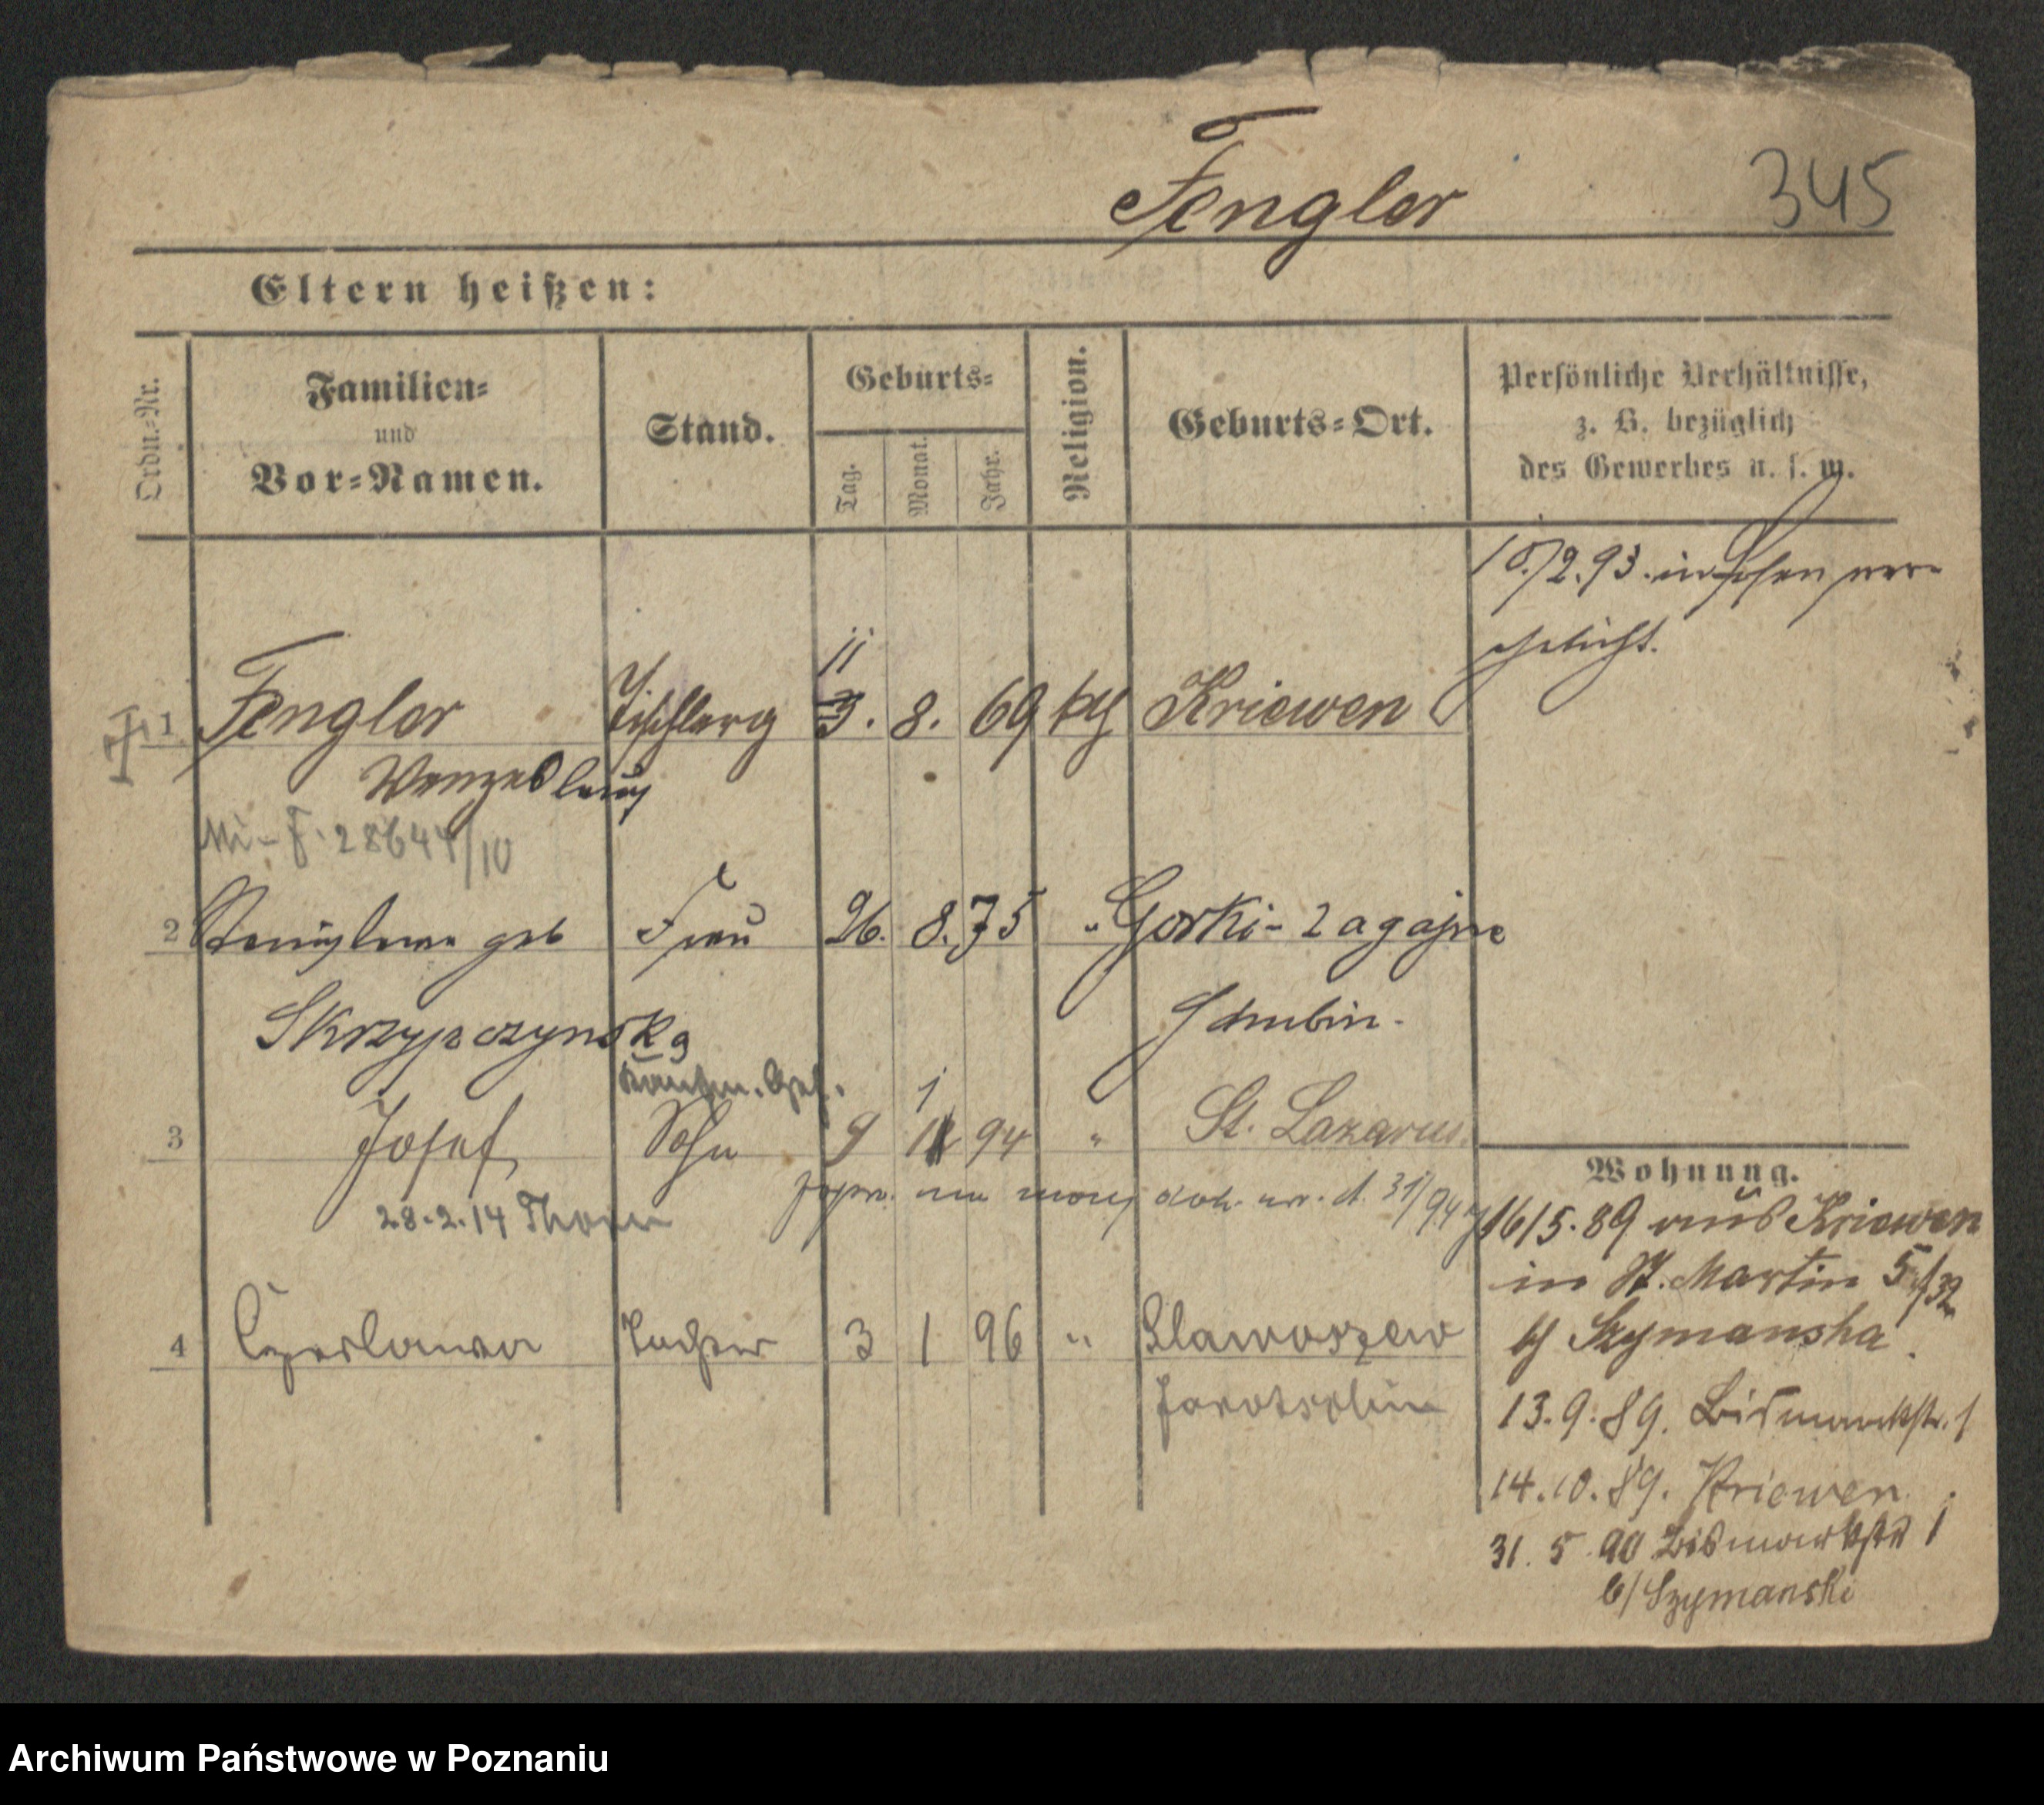 Fengler 345
Eltern heißen:
Ordn.-Nr.
Familien-
und
Vor-Namen.
Stand.
Geburts-
Tag.
Monat.
Jahr.
Religion.
Geburts-Ort.
Persönliche Verhältnisse,
z. B. bezüglich
des Gewerbes u. s. w.
2.93. in Posen ver-
ehelicht.
11
1 Fengler Tischlerg 3. 8. 69 kth Kriewen
Wenzeslaus
28644/10
2 Stanislawa geb Frau 26. 8. 75 " Gorki-Zagajne
Skrzypczynska Schubin.
Kaufm. Geh. 1
3 Josef Sohn 9 94 " St. Lazarus
28.2.14 Thorn
4 Czeslawa Tochter 3 1 96 " Slawoszew
Jarotschin
Wohnung.
16/5.89 aus Kriewen
in St. Martin
b/ Szymanska.
13.9.89. Bismarckstr. 1
14.10.89. Kriewen.
31. 5. 90 Bismarckstr 1
b/ Szymanski
Archiwum Państwowe w Poznaniu